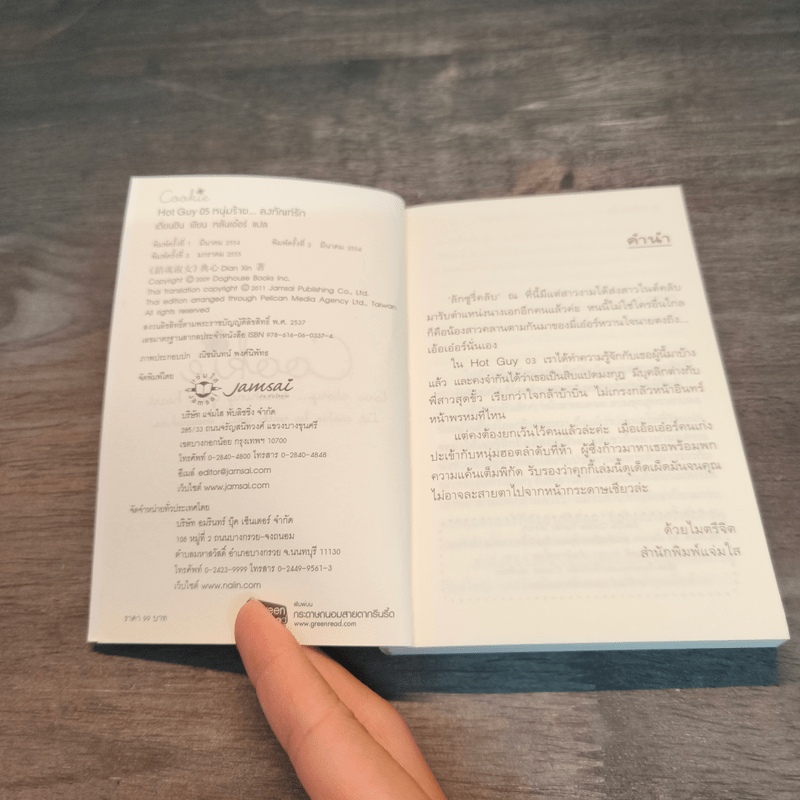 Cookie
Hot Guy 05 หนุ่มร้าย... ลงทัณฑ์รัก
เตียนซิน เขียน หลินเอ๋อร์ แปล
พิมพ์ครั้งที่ 1 มีนาคม 2554 พิมพ์ครั้งที่ 2 มีนาคม 2554
พิมพ์ครั้งที่ 3 มกราคม 2555
淑女》典心 Dian Xin 著
Copyright © 2009 Doghouse Books Inc.
Thai translation copyright © 2011 Jamsai Publishing Co., Ltd.
Thai edition arranged through Pelican Media Agency Ltd., Taiwan
All rights reserved
สงวนลิขสิทธิ์ตามพระราชบัญญัติลิขสิทธิ์ พ.ศ. 2537
เลขมาตรฐานสากลประจำหนังสือ ISBN 978-616-06-0337-4
ภาพประกอบปก ณัชนันทน์ พงศ์นิพัทธ
จัดพิมพ์โดย
jamsai
บริษัท แจ่มใส พับลิชชิ่ง จำกัด
285/33 ถนนจรัญสนิทวงศ์ แขวงบางขุนศรี
เขตบางกอกน้อย กรุงเทพฯ 10700
โทรศัพท์ 0-2840-4800 โทรสาร 0-2840-4848
อีเมล์ editor@jamsai.com
เว็บไซต์ www.jamsai.com
จัดจำหน่ายทั่วประเทศโดย
บริษัท อมรินทร์ บุ๊ค เซ็นเตอร์ จำกัด
108 หมู่ที่ 2 ถนนบางกรวย-จงถนอม
ตำบลมหาสวัสดิ์ อำเภอบางกรวย จ.นนทบุรี 11130
โทรศัพท์ 0-2423-9999 โทรสาร 0-2449-9561-3
เว็บไซต์ www.naiin.com
ราคา 99 บาท
พิมพ์บน
กระดาษถนอมสายตากรีนรี้ด
www.greenread.com
คำนำ
'ลักชูรี่คลับ' ณ ที่นี้มีแต่สาวงามได้ส่งสาวในต์คลับ
มารับตำแหน่งนางเอกอีกคนแล้วค่ะ หนนี้ไม่ใช่ใครอื่นไกล
ก็คือน้องสาวคลานตามกันมาของมี่เอ๋อร์หวานใจนายตงถิง...
เอ้อเอ๋อร์นั่นเอง
ใน Hot Guy 03 เราได้ทำความรู้จักกับเธอผู้นี้มาบ้าง
แล้ว และคงจำกันได้ว่าเธอเป็นสิบแปดมงกุฎ มีบุคลิกต่างกับ
พี่สาวสุดขั้ว เรียกว่าใจกล้าบ้าบิ่น ไม่เกรงกลัวหน้าอินทร์
หน้าพรหมที่ไหน
แต่คงต้องยกเว้นไว้คนแล้วล่ะค่ะ เมื่อเอ้อเอ๋อร์คนเก่ง
ปะเข้ากับหนุ่มฮอตลำดับที่ห้า ผู้ซึ่งก้าวมาหาเธอพร้อมพก
ความแค้นเต็มพิกัด รับรองว่าคุกกี้เล่มนี้ดุเด็ดเผ็ดมันจนคุณ
ไม่อาจละสายตาไปจากหน้ากระดาษเชียวล่ะ
ด้วยไมตรีจิต
สำนักพิมพ์แจ่มใส